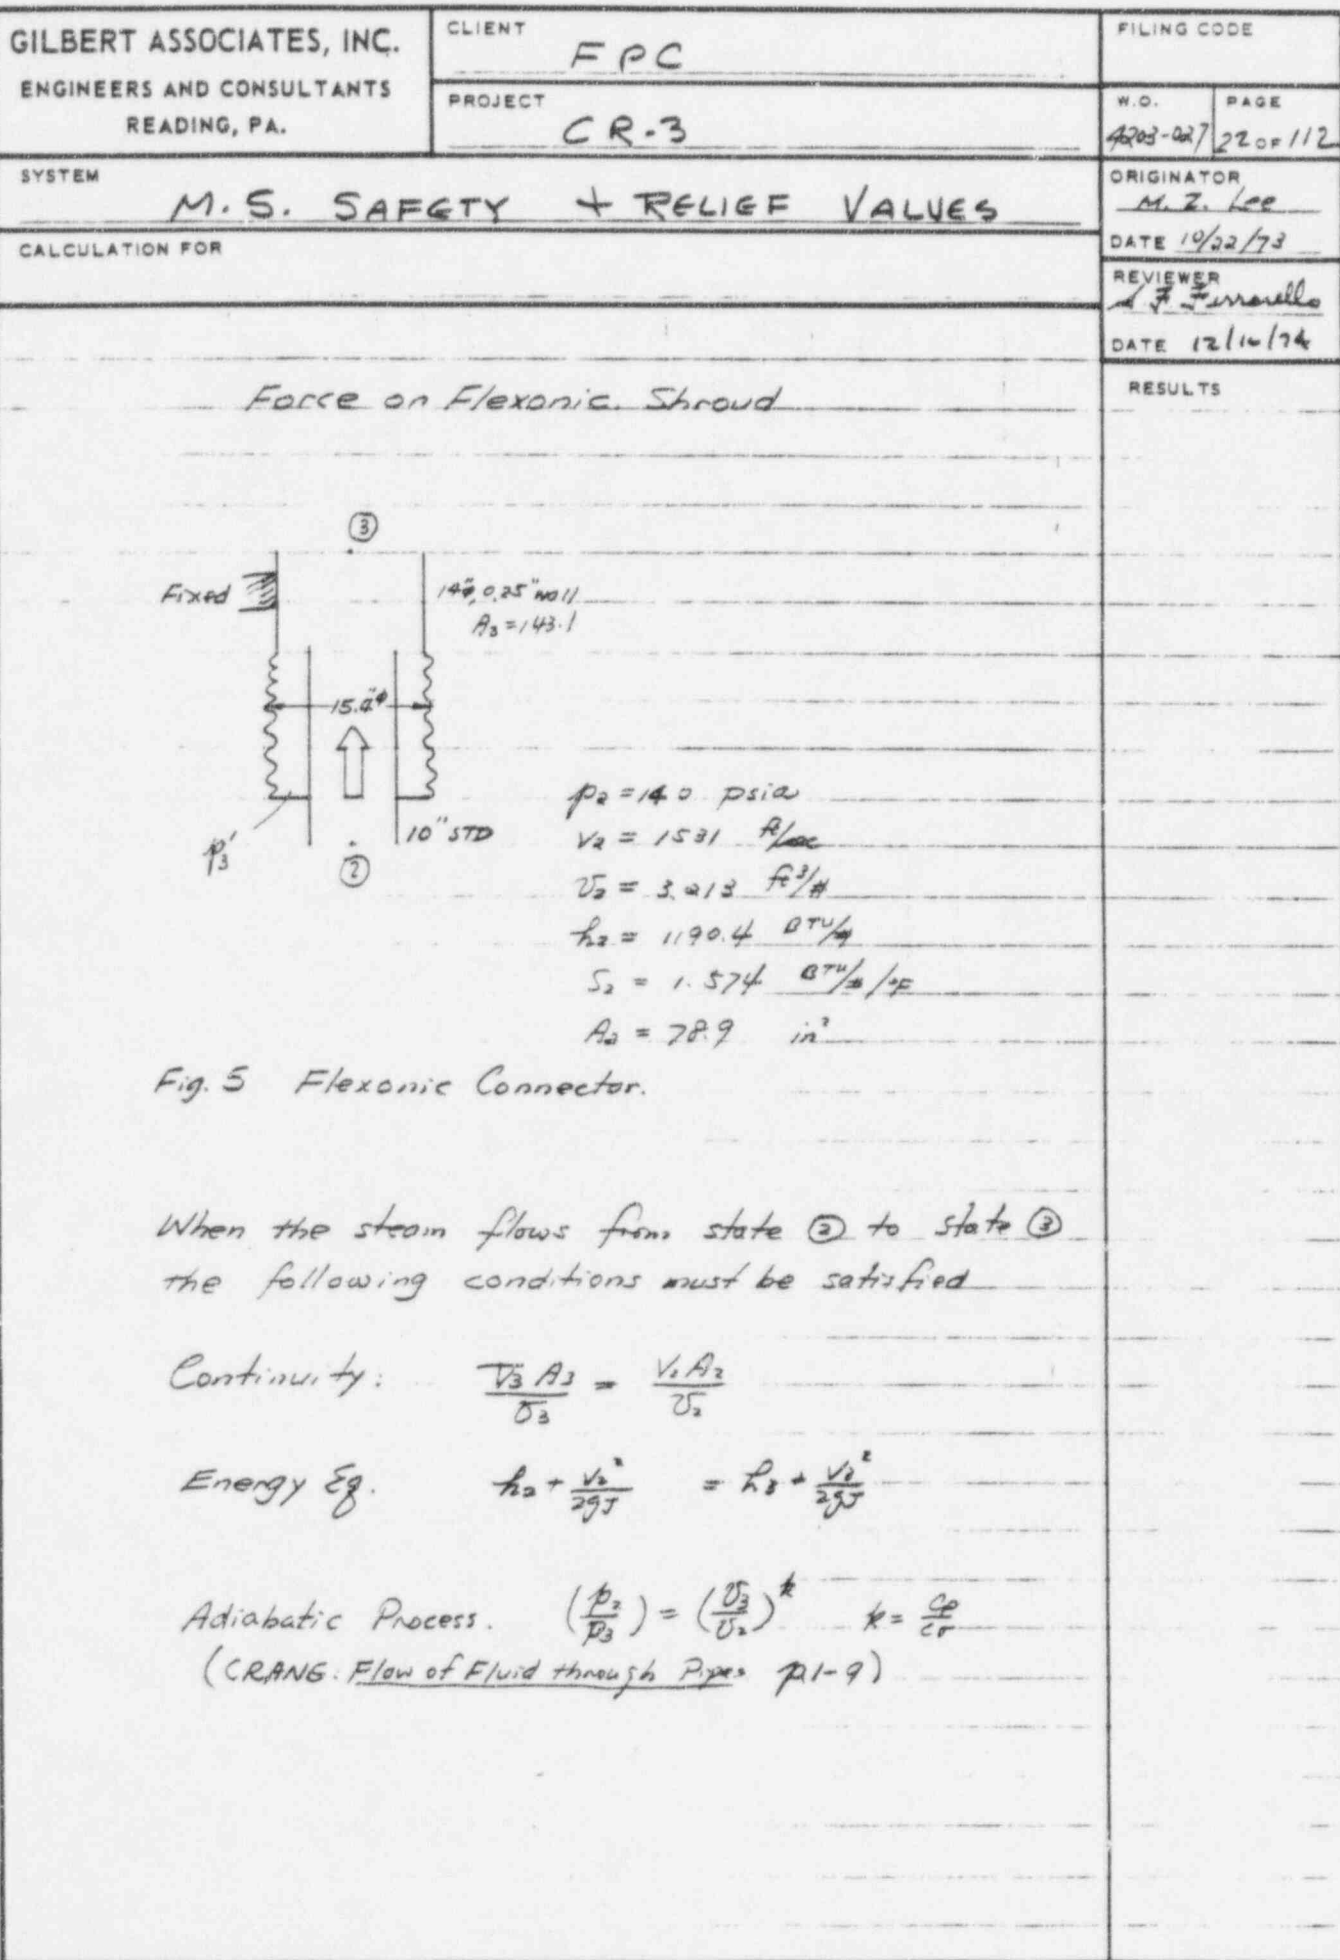 GILBERT ASSOCIATES, INC.
ENGINEERS AND CONSULTANTS
READING, PA.
CLIENT
FPC
PROJECT
CR-3
FILING CODE
W.O.
4203-027
PAGE
22 OF 112
SYSTEM
M.S. SAFETY + RELIEF VALUES
ORIGINATOR
M. Z. Lee
DATE 10/22/73
CALCULATION FOR
REVIEWER
F. Ferrarello
DATE 12/16/74
RESULTS
Force on Flexonic Shroud
③
Fixed
14"φ, 0.25" wall
A₃ = 143.1
15.4"φ
p₃'
10" STD
②
p₂ = 140 psia
V₂ = 1531 ft/sec
v₂ = 3.213 ft³/#
h₂ = 1190.4 BTU/#
S₂ = 1.574 BTU/#/°F
A₂ = 78.9 in²
Fig. 5 Flexonic Connector.
When the steam flows from state ② to state ③
the following conditions must be satisfied
Continuity: V₃ A₃ / v₃ = V₂ A₂ / v₂
Energy Eq. h₂ + V₂² / 2gJ = h₃ + V₃² / 2gJ
Adiabatic Process. (p₂ / p₃) = (v₃ / v₂)^k k = cp / cv
(CRANE: Flow of Fluid through Pipes p.1-9)